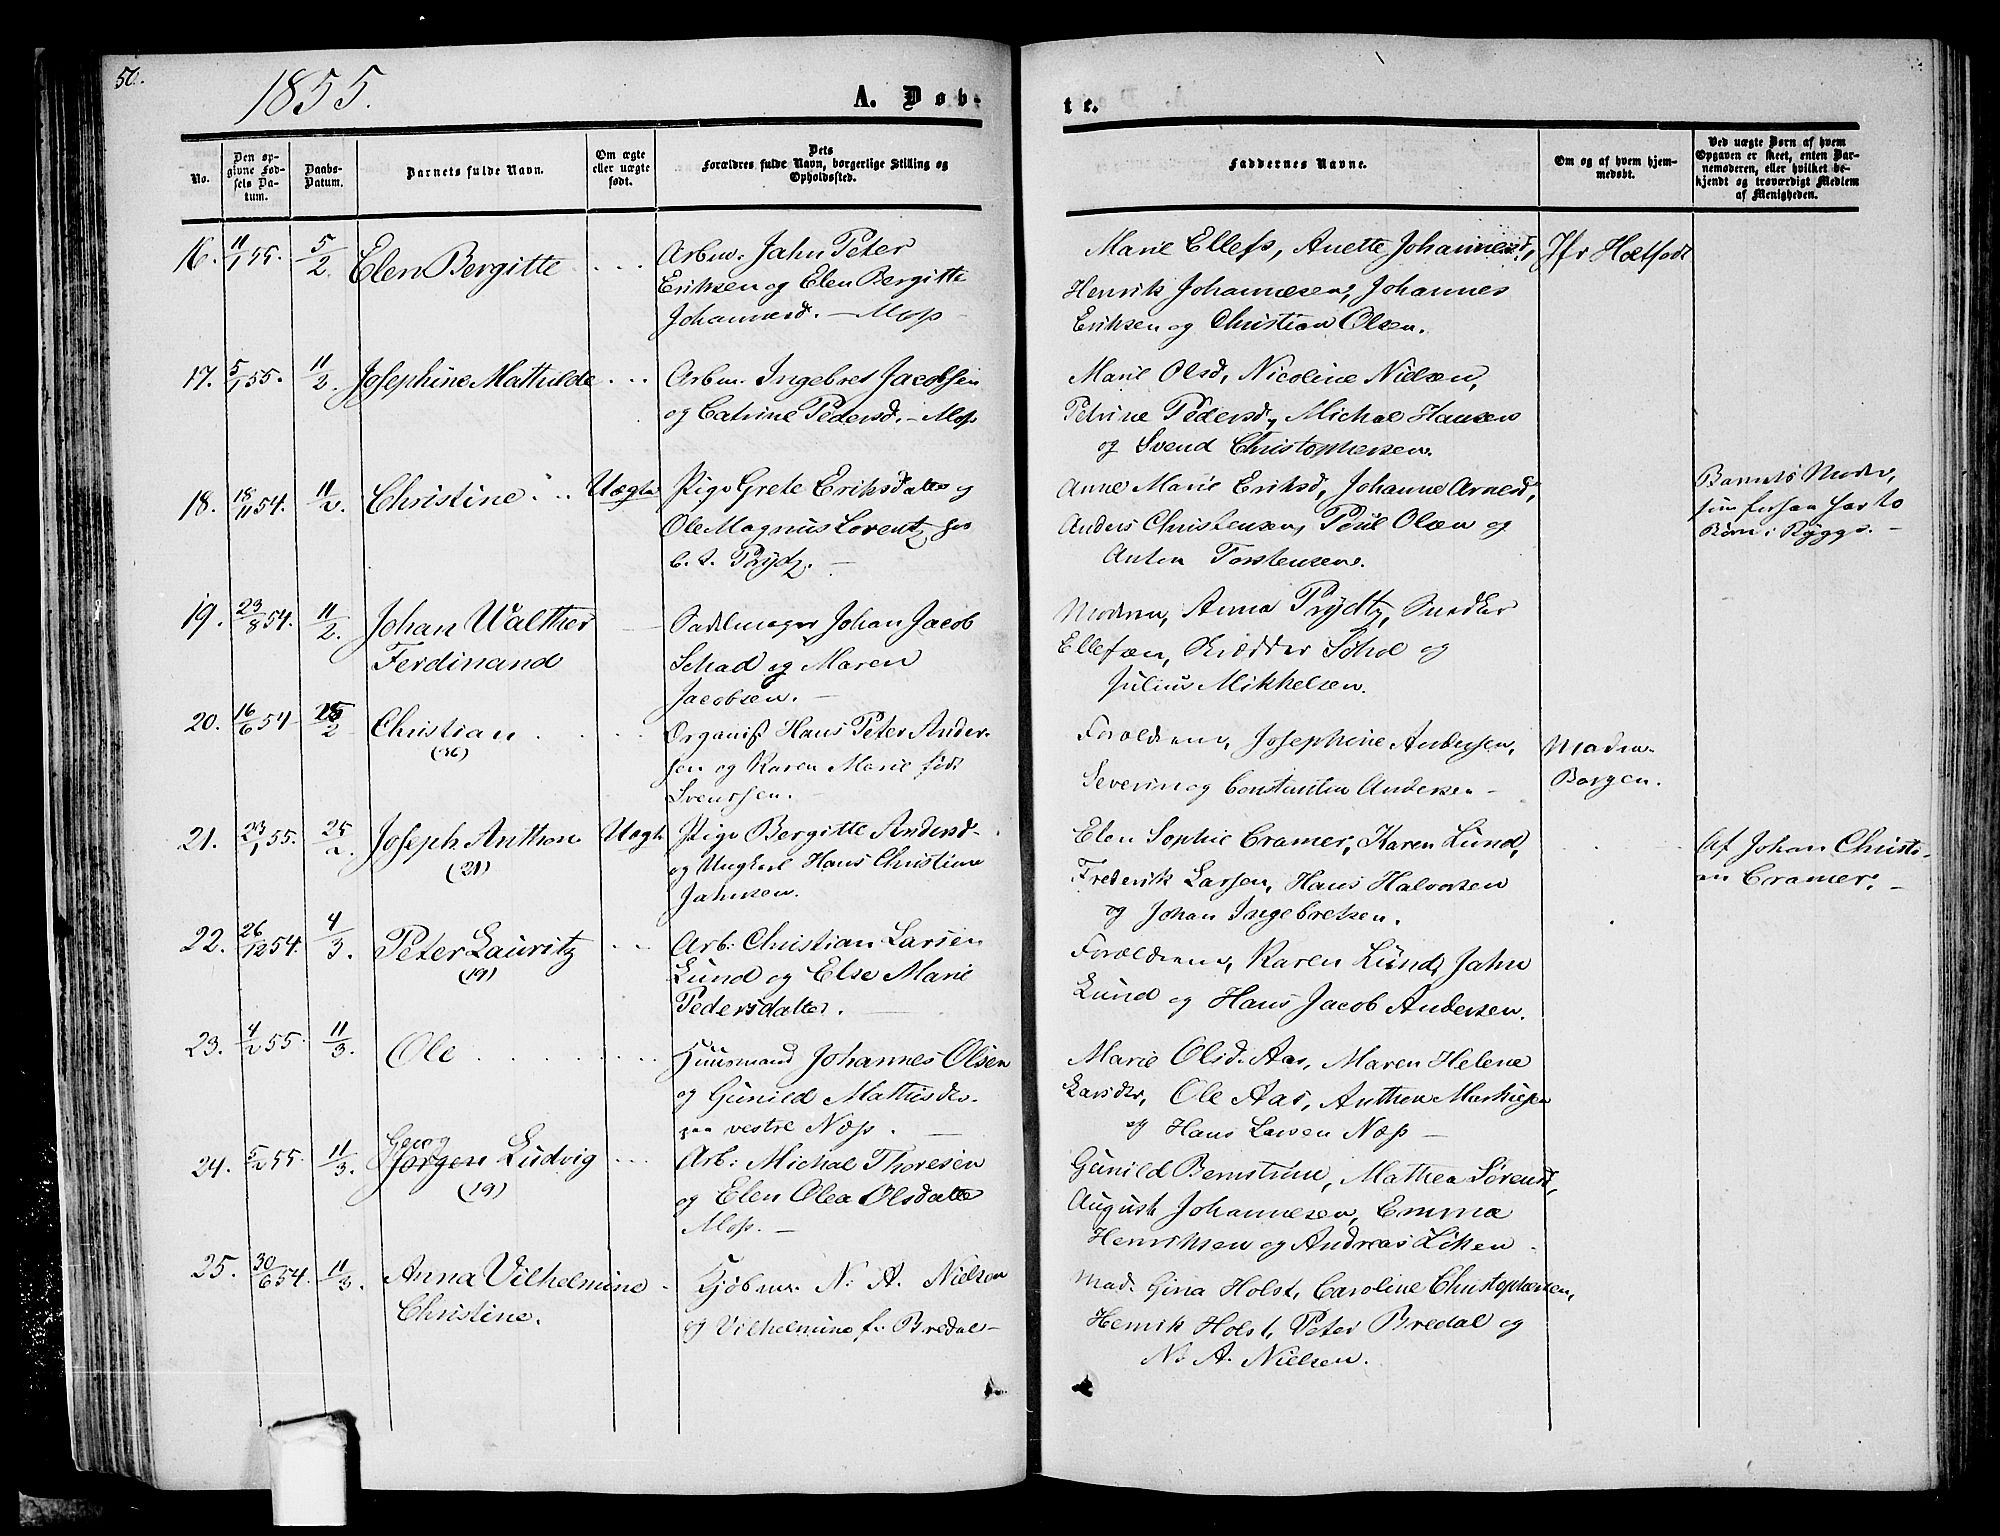 50.
1855.
A. Døb-
te.
No.
Den op-
givne Fød-
sels Da-
tum.
Daabs-
Datum.
Barnets fulde Navn.
Om ægte
eller uægte
født.
Dets
Forældres fulde Navn, borgerlige Stilling og
Opholdssted.
Faddernes Navne.
Om og af hvem hjem-
medøbt.
Ved uægte Børn af hvem
Opgaven er skeet, enten Bar-
nemoderen, eller hvilket be-
kjendt og troværdigt Medlem
af Menigheden.
16. 11/1 55. 5/2 Elen Bergitte
Arbm. Jahn Peter
Eriksen og Elen Bergitte
Johannesd. - Mos -
Marie Ellefs, Anette Johannesd.,
Henrik Johannesen, Johannes
Eriksen og Christian Olsen.
Jfr Holtfodt
17. 5/1 55. 11/2. Josephine Mathilde
Arbm. Ingebret Jacobsen
og Catrine Pedersd. - Mos
Marie Olsd, Nicoline Nielsen,
Petrine Pedersd, Michal Hansen
og Svend Christophersen.
18. 18/11 54. 11/2. Christine Uægte
Pige Grete Eriksdatter og
Ole Magnus Lorentz
b. t. Prydz. -
Anne Marie Eriksd, Johanne Arnesd,
Anders Christensen, Poul Olsen og
Anton Torstensen.
Barnets Moder,
Børn i Rygge. -
19. 23/8 54. 11/2. Johan Walther
Ferdinand
Sadelmager Johan Jacob
Schad og Maren
Jacobsen. -
Moderen, Anna Prydtz, Snedker
Ellefsen, Skiødder Schol og
Julius Mikkelsen.
20. 16/6 54 25/2 Christian
(36)
Organist Hans Peter Ander-
sen og Karen Marie født
Svendsen. -
Forældrene, Josephine Andersen,
Severin og Constantin Andersen -
Madm.
Borgen.
21. 23/1 55. 25/2 Joseph Anthon Uægte
(21)
Pige Bergitte Andersd.
og Ungkarl Hans Christian
Jahnsen.
Elen Sophie Cramer, Karen Lund,
Frederik Larsen, Hans Halvorsen
og Johan Ingebretsen.
Af Johan Christi-
an Cramer. -
22. 26/12 54. 4/3. Peter Lauritz
(19)
Arb: Christian Larsen
Lund og Else Marie
Pedersdatter. -
Forældrene, Karen Lund, Jahn
Lund og Hans Jacob Andersen.
23. 4/2 55. 11/3. Ole
Huusmand Johannes Olsen
og Gunild Mathisdr.
paa vestre Næs. -
Marie Olsd. Aas, Maren Helene
Larsdtr, Ole Aas, Anthon Mathisen
og Hans Larsen Næs -
Georg
24. 5/2 55. 11/3. Jørgen Ludvig
(19)
Arb: Michal Thoresen
og Elen Olea Olsdatter
Mos. -
Gunild Bernstine, Mathea Sørensd,
August Johannesen, Emma
Henriksen og Andreas Lilken.
25. 30/6 54. 11/3. Anna Vilhelmine
Christine.
Kjøbm. N. A. Nielsen
og Vilhelmine f. Bredal -
Mad. Gina Holst, Caroline Christophersen,
Henrik Holst, Peter Bredal og
N. A. Nielsen.